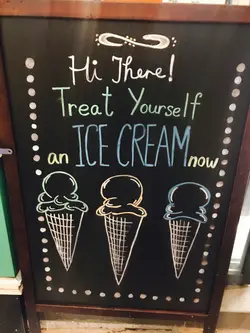 Hi There!
Treat Yourself
an ICE CREAM now